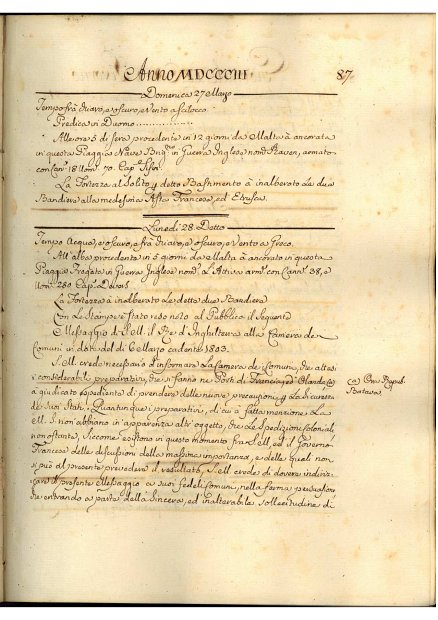 Anno MDCCCIII 87
Domenica 27 Marzo
Tempo frà Nuvo, e oscuro, e Vento a Scilocco
Predica in Duomo
Alle ore 5 di sera procedente in 12 giorni da Malta à ancorata
in questa Piaggia Nave Brig.no in Guerra Inglese nom.o Raven, armato
con Can.i 18 Uom. 70. Cap.
La Fortezza al Solito p detto Bastimento à inalberato La due
Bandiere alla medesima Asta Francese, ed Etrusca.
Lunedì 28 Detto
Tempo Acqua, e oscuro, e frà Nuvo, e oscuro, e Vento a Greco.
All'alba procedente in 5 giorni da Malta à ancorato in questa
Piaggia Fregata in Guerra Inglese nom.a L'Attiva arm. con Cann. 38, e
Uom. 280 Cap.
La Fortezza à inalberato Le dette due Bandiere
Con Le Stampe è stato reso noto al Pubblico il Seguente
Messaggio di S. M. il Re d'Inghilterra alla Camera de
Comuni in data del di 6 Marzo cadente 1803.
S. M. crede necessario d'informare La Camera de Comuni, che attesi
i considerabili preparativi, che si fanno ne Porti di Francia, ed Olanda (a)
(a) Ora Repub.
Batava
a giudicato espediente di prendere delle nuove precauzioni p La Sicurezza
de suoi Stati. Quantunque i preparativi, di cui a fatta menzione La
M. S. non abbiano in apparenza altr'oggetto, che Le Spedizioni Coloniali
nonostante, Siccome esistono in questo momento fra S. M., ed il Governo
Francese delle discussioni della massima importanza, e delle quali non
si può al presente prevedere il resultato, S. M. crede di dovere indiriz-
zare il presente Messaggio a suoi fedeli Comuni, nella ferma persuasione
che entrando a parte della Sincera, ed inalterabile Sollecitudine di